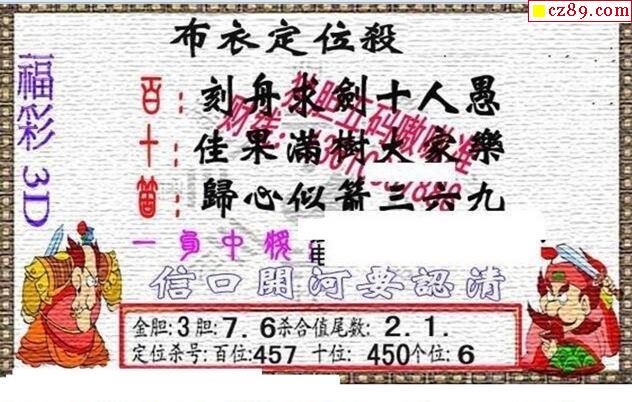 cz89.com
布衣定位殺
福彩 3D
百: 刻舟求劍十人愚
十: 佳果滿樹大家樂
箇: 歸心似箭三六九
信口開河要認清
金胆:3胆:7.6杀合值尾数: 2.1.
定位杀号:百位:457 十位: 450个位:6